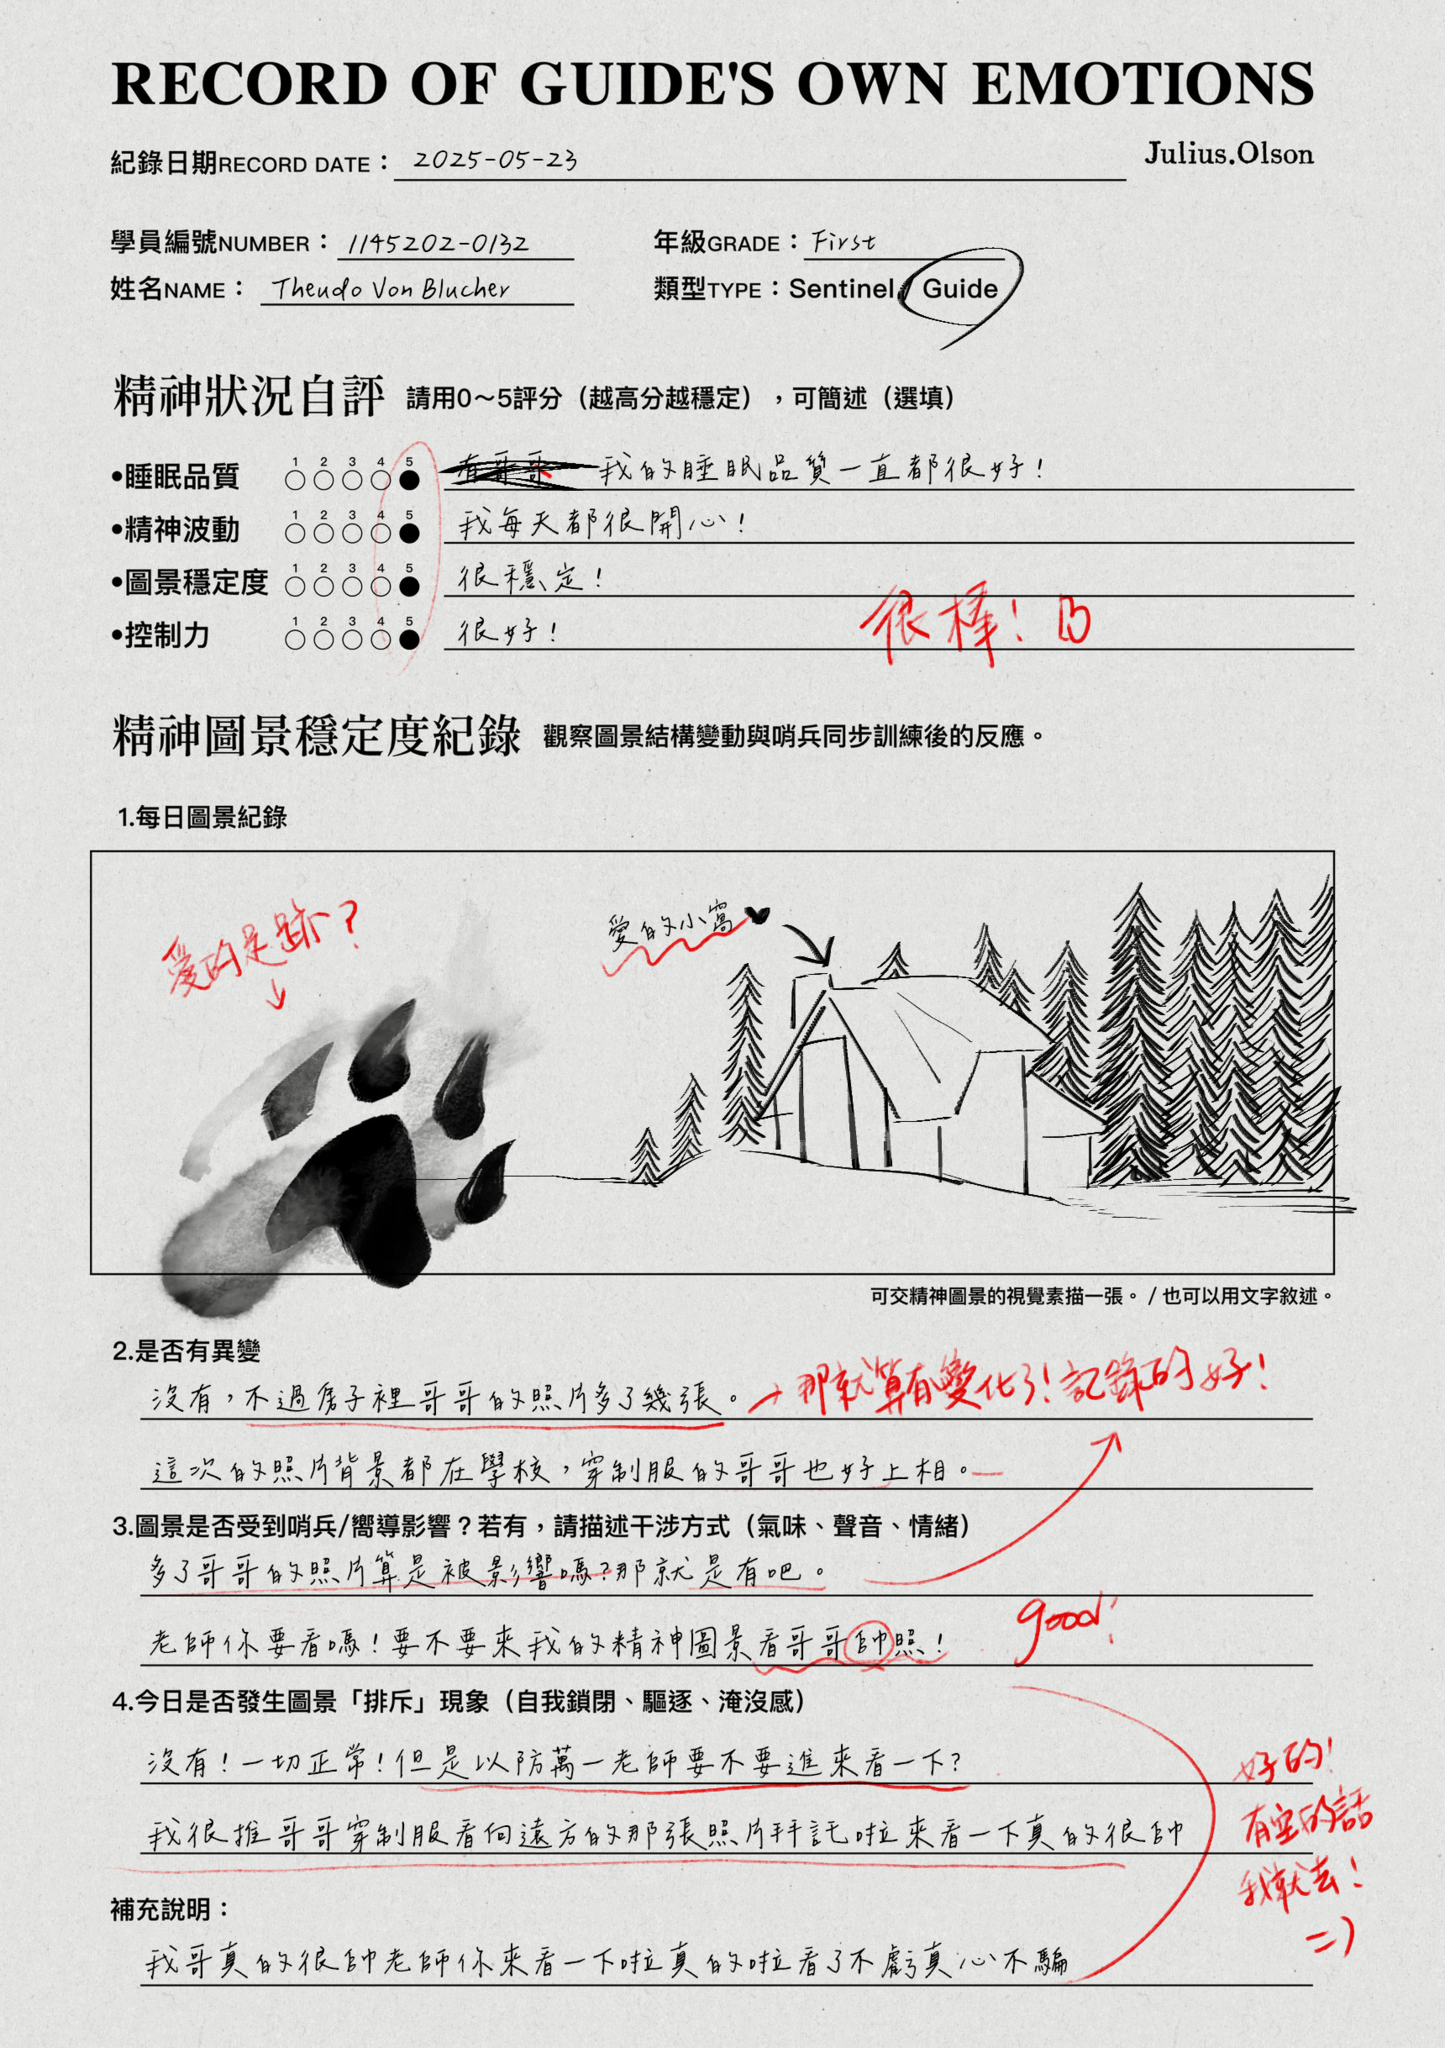 RECORD OF GUIDE'S OWN EMOTIONS
紀錄日期RECORD DATE：2025-05-23
Julius.Olson
學員編號NUMBER：1145202-0132 年級GRADE：First
姓名NAME：Theudo Von Blucher 類型TYPE：Sentinel/Guide
精神狀況自評 請用0～5評分（越高分越穩定），可簡述（選填）
•睡眠品質 1 2 3 4 5 有哥哥 我的睡眠品質一直都很好！
•精神波動 1 2 3 4 5 我每天都很開心！
•圖景穩定度 1 2 3 4 5 很穩定！
•控制力 1 2 3 4 5 很好！
很棒！
精神圖景穩定度紀錄 觀察圖景結構變動與哨兵同步訓練後的反應。
1.每日圖景紀錄
愛的足跡？
愛的小窩
可交精神圖景的視覺素描一張。/也可以用文字敘述。
2.是否有異變
沒有，不過房子裡哥哥的照片多了幾張。→那就算有變化了！記錄的好！
這次的照片背景都在學校，穿制服的哥哥也好上相。
3.圖景是否受到哨兵/嚮導影響？若有，請描述干涉方式（氣味、聲音、情緒）
多了哥哥的照片算是被影響嗎？那就是有吧。
good!
老師你要看嗎！要不要來我的精神圖景看哥哥帥照！
4.今日是否發生圖景「排斥」現象（自我鎖閉、驅逐、淹沒感）
沒有！一切正常！但是以防萬一老師要不要進來看一下？
我很推哥哥穿制服看向遠方的那張照片拜託啦來看一下真的很帥
好的！
有空的話
我就去！
=)
補充說明：
我哥真的很帥老師你來看一下啦真的啦看了不虧真心不騙